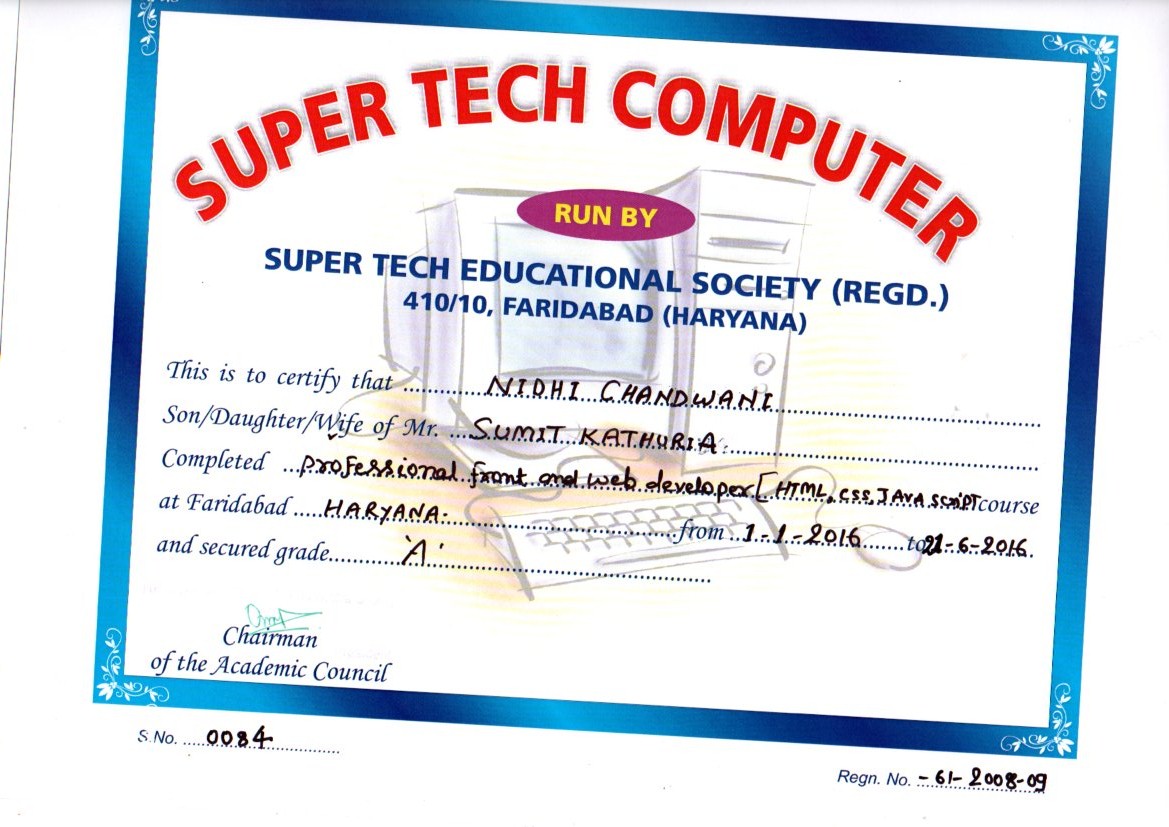 SUPER TECH COMPUTER
RUN BY
SUPER TECH EDUCATIONAL SOCIETY (REGD.)
410/10, FARIDABAD (HARYANA)
This is to certify that ............NIDHI CHANDWANI............
Son/Daughter/Wife of Mr. ...SUMIT KATHURIA............
Completed ...professional front and web developer [HTML, CSS, JAVA SCRIPT course
at Faridabad ....HARYANA............from ..1-1-2016.......to 21-6-2016.
and secured grade............'A'............
Chairman
of the Academic Council
S.No. .....0084............
Regn. No. -61-2008-09